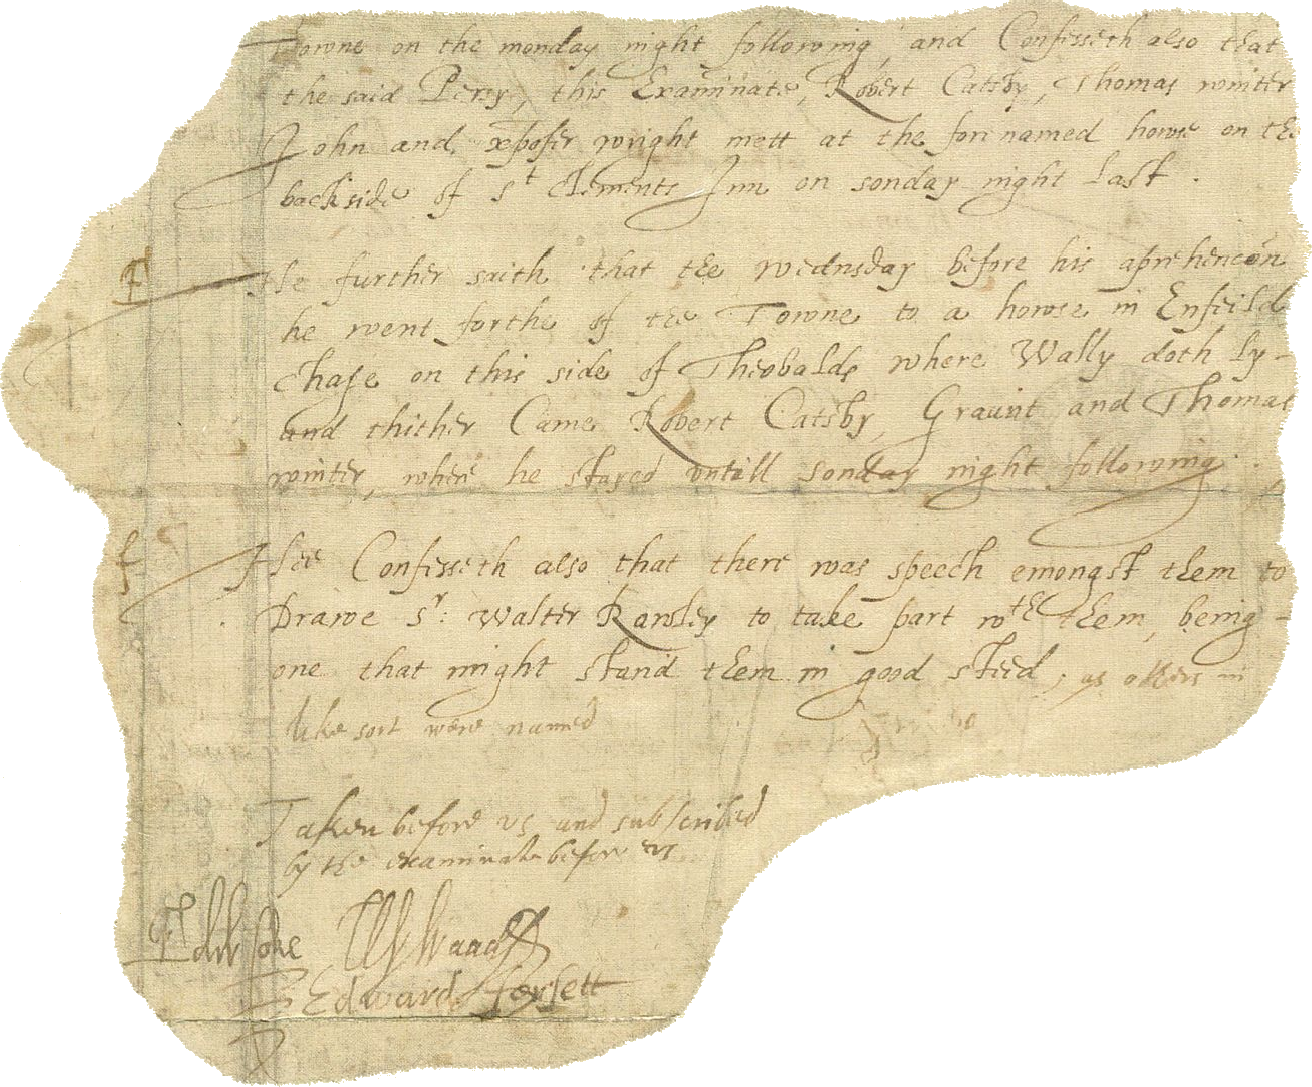 Towne on the monday night following, and Confesseth also that
the said Percy, this Examinate, Robert Catsby, Thomas winter
John and xpofer wright mett at the forenamed howse on the
backside of St Clements Inn on sonday night last.
F He further saith that the wednsday before his aprehencon
he went forthe of the Towne to a howse in Enfeild
chase on this side of Theobalds where Wally doth ly-
and thither Came Robert Catsby, Graunt and Thomas
winter, where he stayed untill sonday night following.
f Hee Confesseth also that there was speech emongst them to
Drawe Sr: Walter Rawley to take part wth them, being-
one that might stand them in good steed, as others in
like sort were named
Taken before us and subscribed
by the examinate before us
Edw Coke W Waad
Edward Forsett